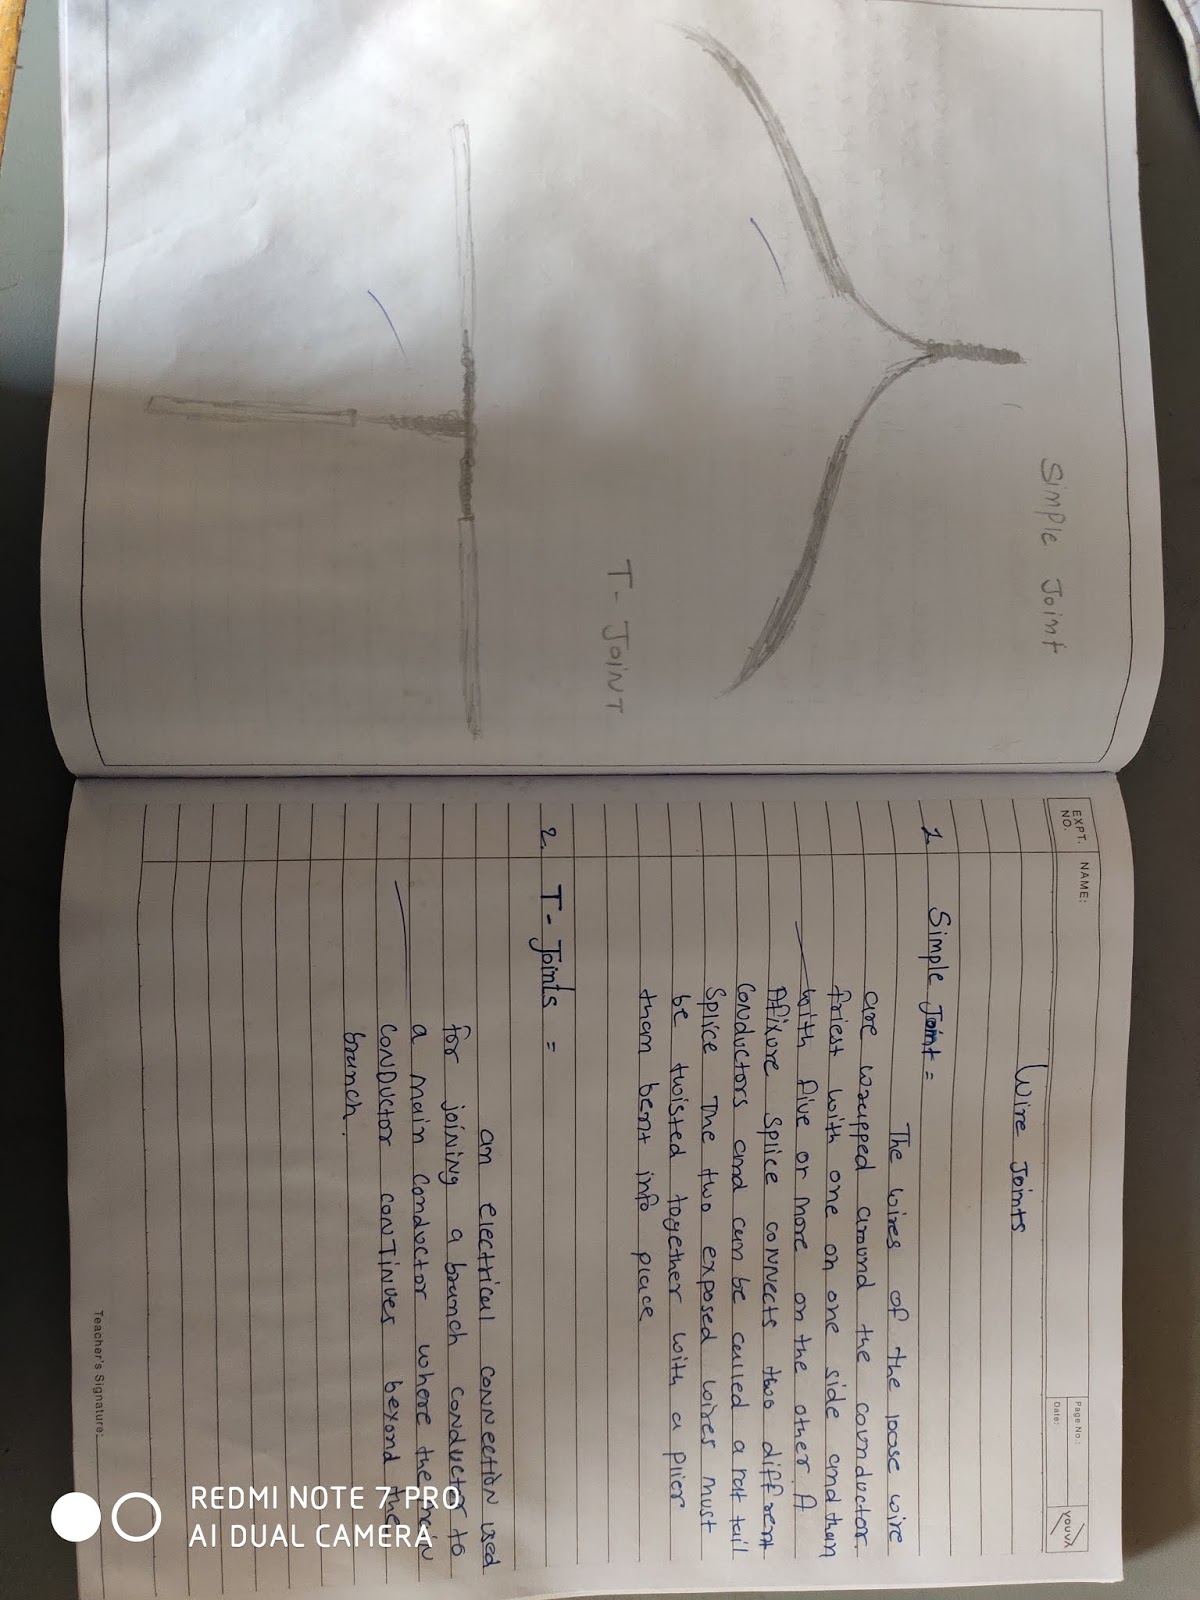 Simple Joint
T-JOINT
EXPT. NO.
NAME:
Page No.:
Date:
youva
Wire Joints
1. Simple Joint =
The wires of the loose wire
are wrapped around the counductor.
friest with one on one side and than
with five or more on the other. A
Afixure splice connects two diffrent
conductors and can be called a rat tail
splice The two exposed wires must
be twisted together with a plier
than bent into place
2. T-Joints =
an electrical connection used
for joining a branch conductor to
a main conductor where the main
conductor continues beyond the
branch.
Teacher's Signature:
REDMI NOTE 7 PRO
AI DUAL CAMERA